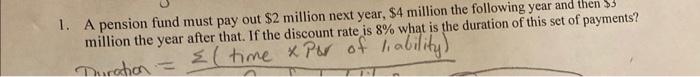 1. A pension fund must pay out $2 million next year, $4 million the following year and then $3
million the year after that. If the discount rate is 8% what is the duration of this set of payments?
Duration = Σ( time x PV of liability)